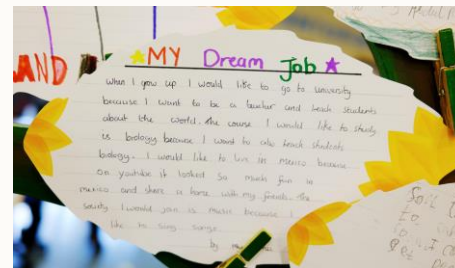 AND
MY Dream Job
when I grow up I would like to go to university
because I want to be a teacher and teach students
about the world. the course I would like to study
is biology because I want to teach students
biology. I would like to live in mexico because
on youtube it looked so much fun in
mexico and share a home with my friends. the
society I would join is music because I
like to sing songs.
by